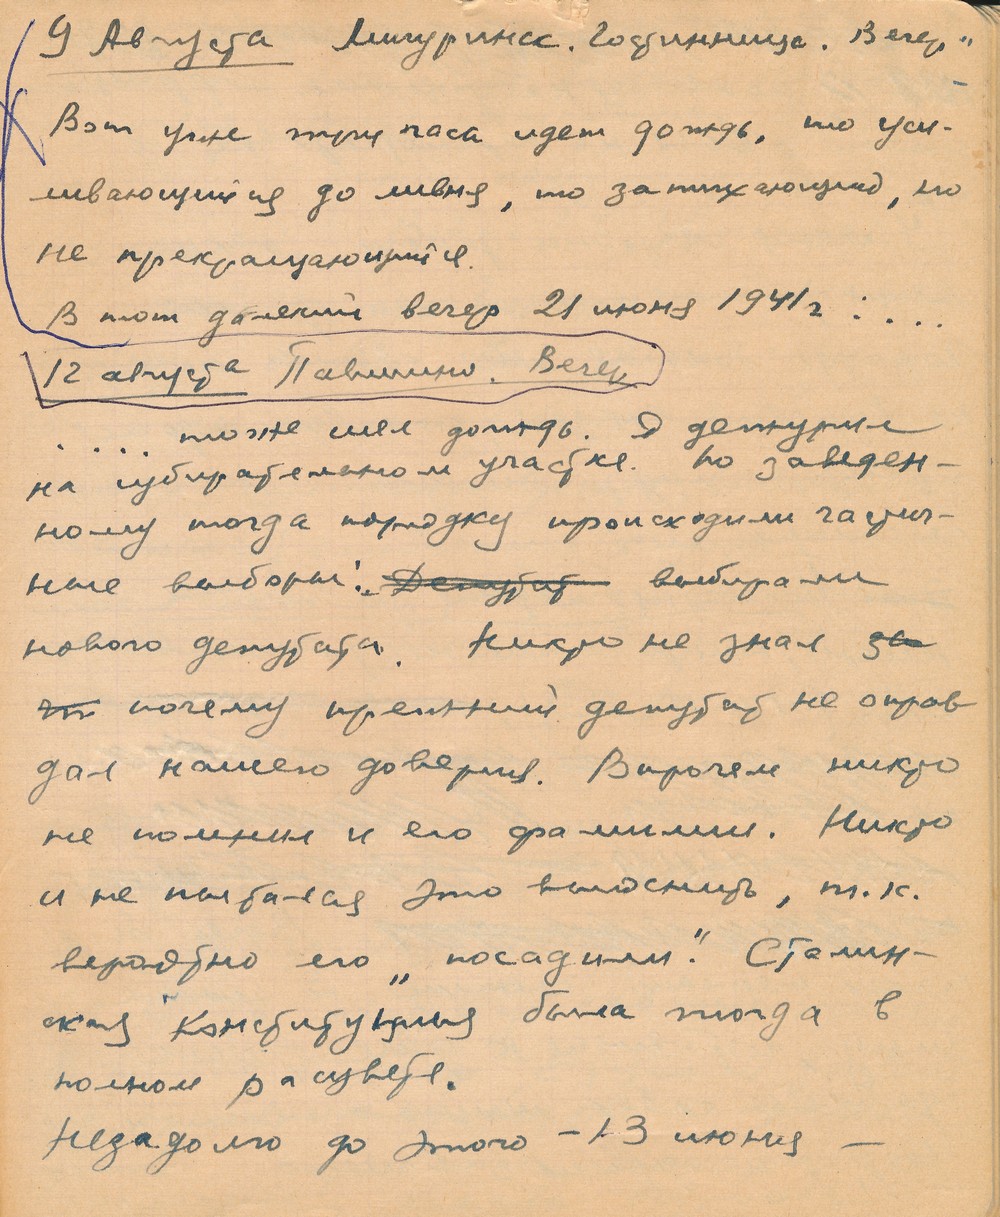 9 Августа Мичуринск. Гостинница. Вечер"
Вот уже три часа идет дождь, то уси-
ливающийся до ливня, то затихающий, но
не прекращающийся.
В тот далекий вечер 21 июня 1941г : ...
12 августа Павшино. Вечер
.... тоже шел дождь. Я дежурил
на избирательном участке. По заведен-
ному тогда порядку происходили частич-
ные выборы: Депутат выбирали
нового депутата. Никто не знал за
чт почему прежний депутат не оправ
дал нашего доверия. Впрочем никто
не помнил и его фамилии. Никто
и не пытался это выяснить, т.к.
вероятно его „посадили". Сталин-
ская Конституция была тогда в
полном расцвете.
Незадолго до этого – 13 июня –